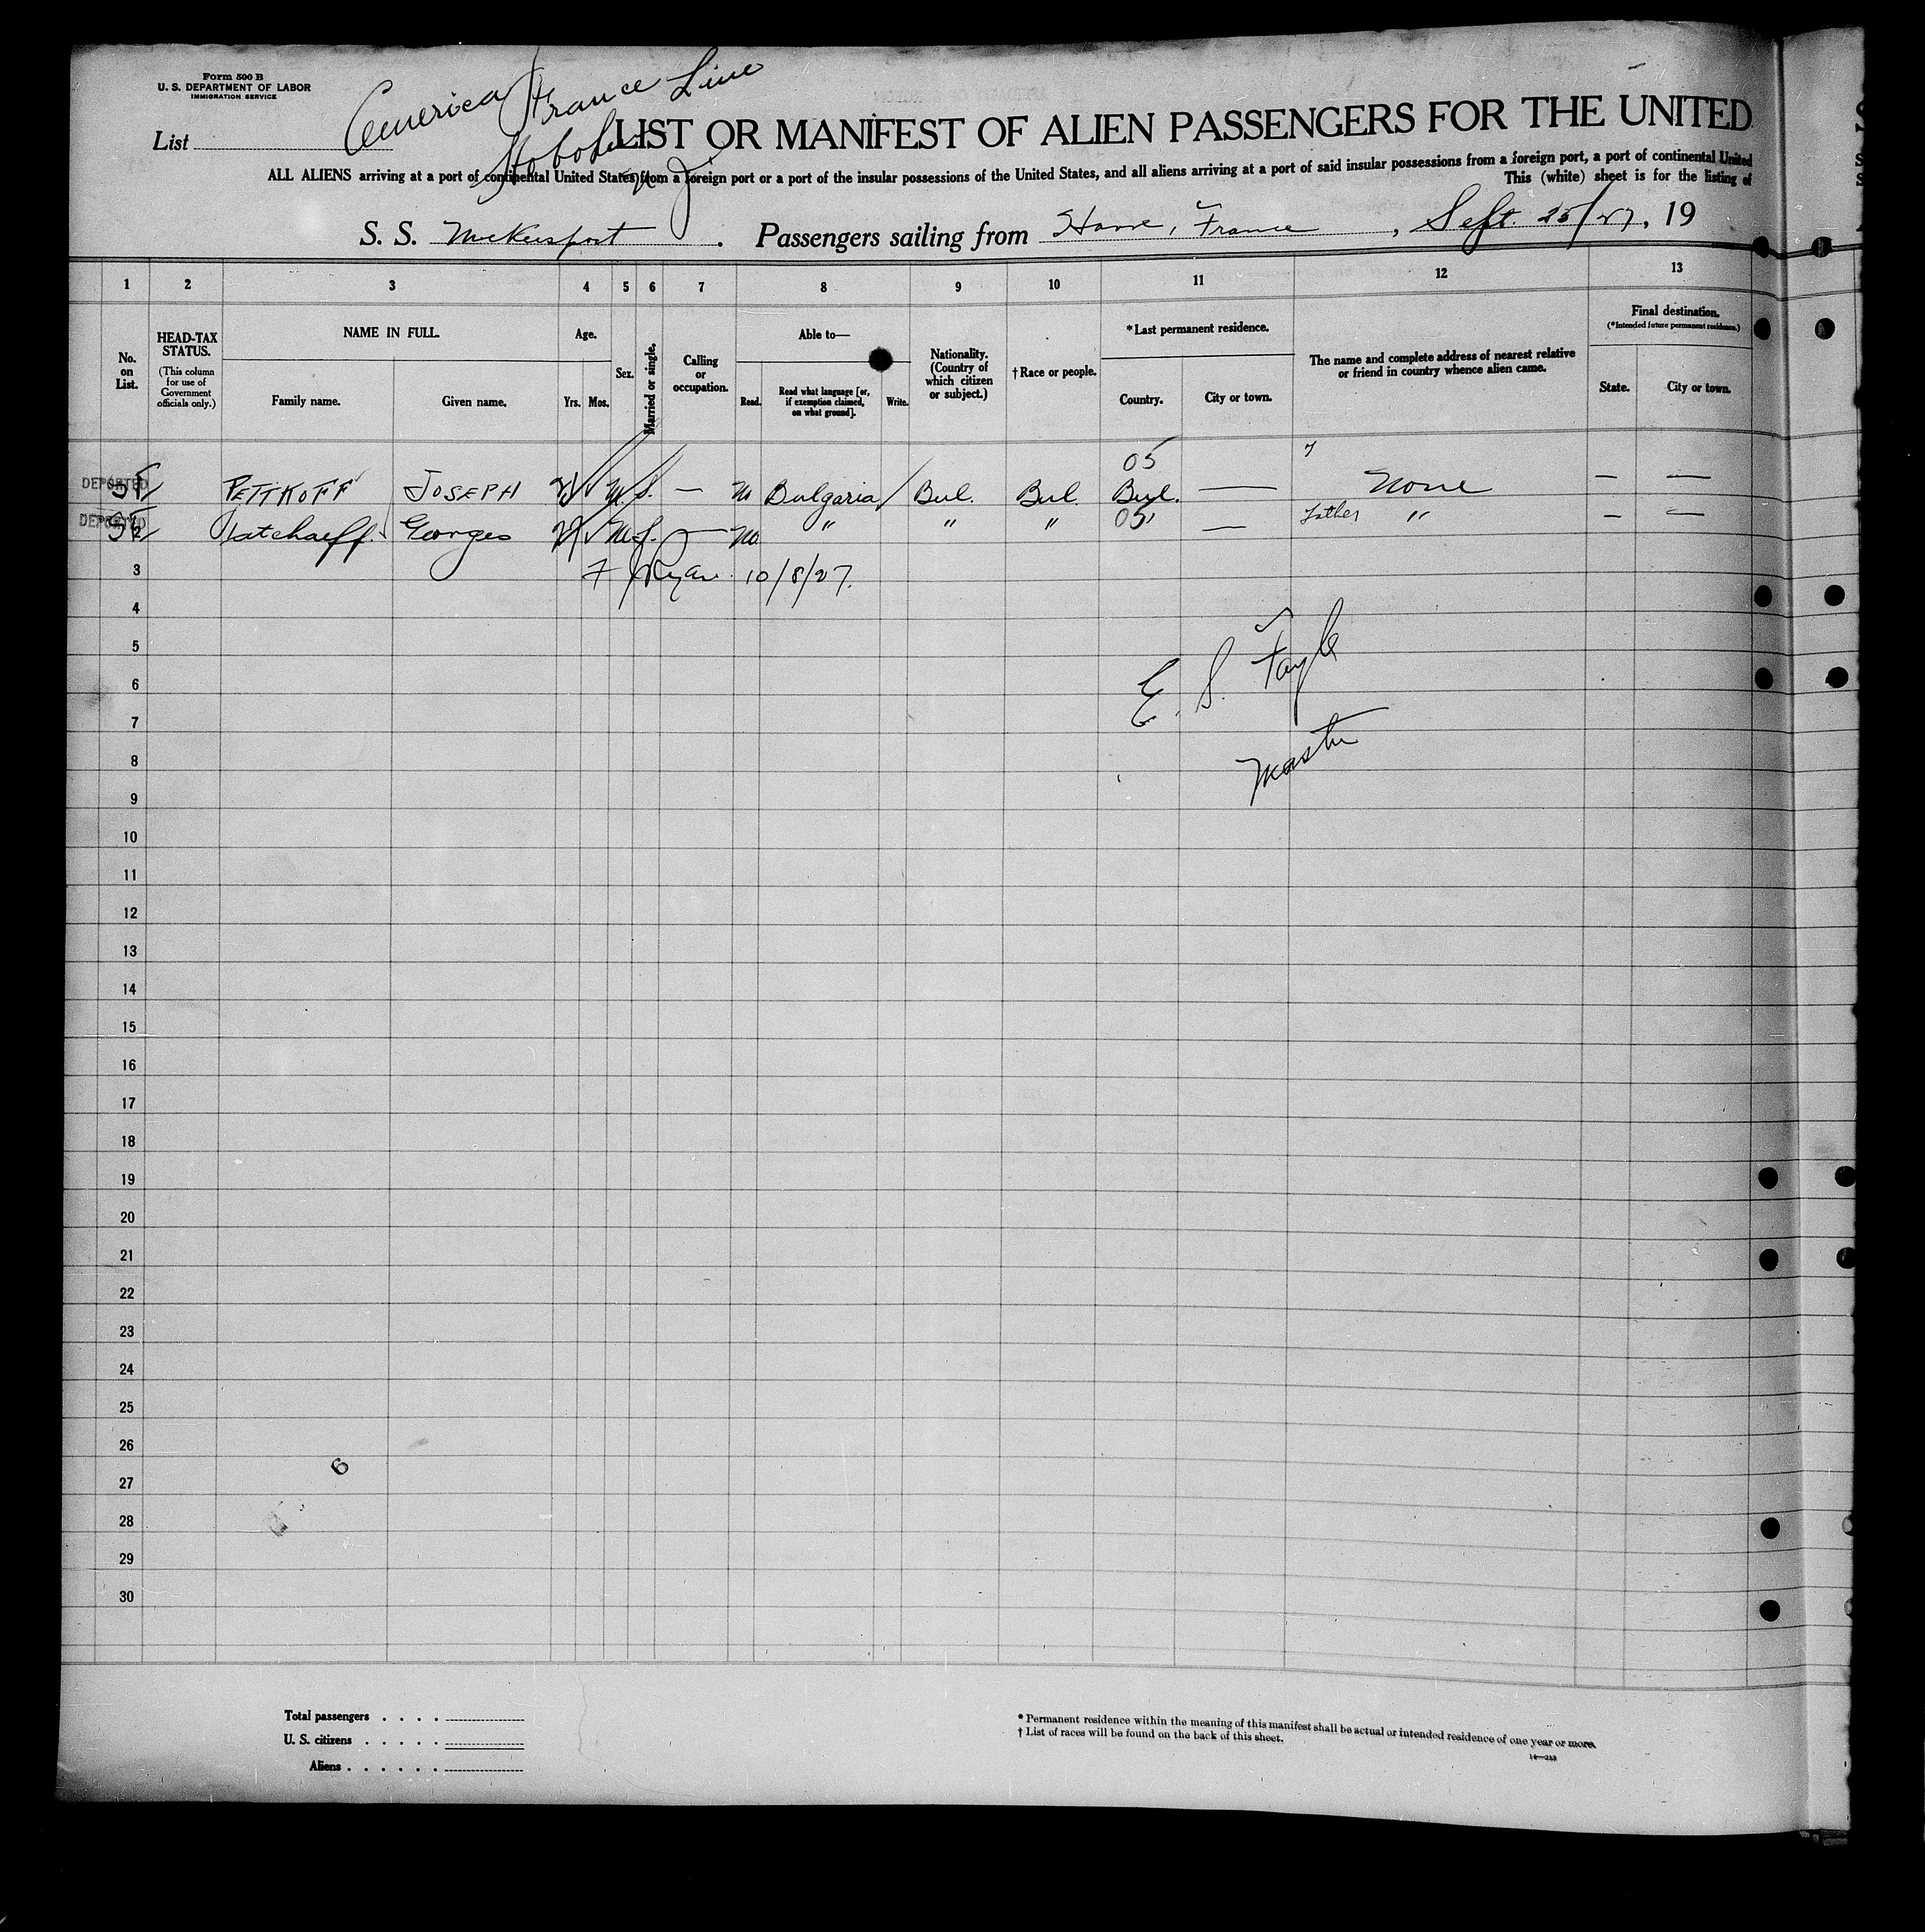 Form 500 B
U. S. DEPARTMENT OF LABOR
IMMIGRATION SERVICE
America France Line
Hoboken
N J
List
LIST OR MANIFEST OF ALIEN PASSENGERS FOR THE UNITED
ALL ALIENS arriving at a port of continental United States from a foreign port or a port of the insular possessions of the United States, and all aliens arriving at a port of said insular possessions from a foreign port, a port of continental United
This (white) sheet is for the listing of
S. S. McKeesport . Passengers sailing from Havre, France , Sept. 25/27, 19
1 2 3 4 5 6 7 8 9 10 11 12 13
No. on List.
HEAD-TAX STATUS.
(This column for use of Government officials only.)
NAME IN FULL.
Family name. Given name.
Age.
Yrs. Mos.
Sex.
Married or single.
Calling or occupation.
Able to—
Read. Read what language [or, if exemption claimed, on what ground]. Write.
Nationality. (Country of which citizen or subject.)
† Race or people.
* Last permanent residence.
Country. City or town.
The name and complete address of nearest relative or friend in country whence alien came.
Final destination.
(*Intended future permanent residence.)
State. City or town.
05
DEPORTED PETTKOFF JOSEPH M. S. — Bulgaria Bul. Bul. Bul. — None — —
DEPORTED Georges M S. — No. " " " 05 — Father " — —
3 F J Ryan. 10/8/27.
4
5
E. S.
6
7
8 Master
9
10
11
12
13
14
15
16
17
18
19
20
21
22
23
24
25
26
6
27
28
29
30
Total passengers . . . .
U. S. citizens . . . . .
Aliens . . . . . .
* Permanent residence within the meaning of this manifest shall be actual or intended residence of one year or more.
† List of races will be found on the back of this sheet.